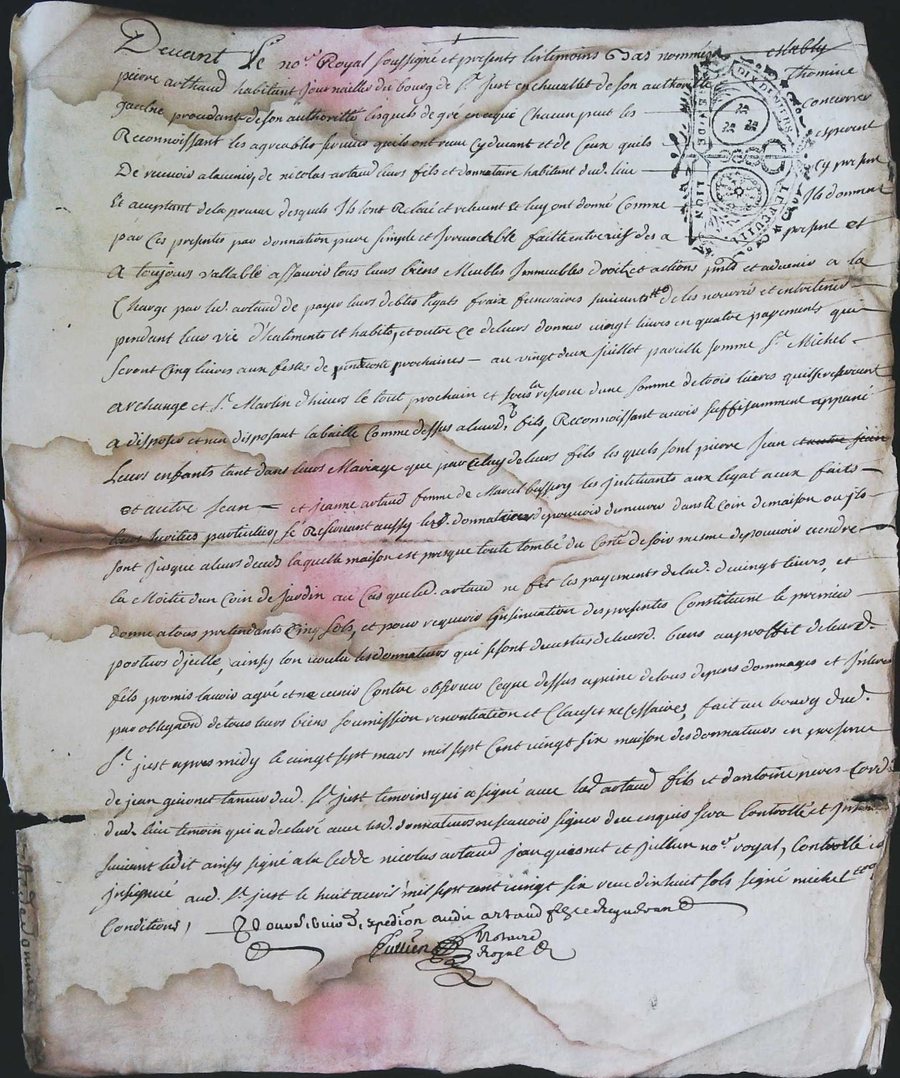 Devant Le no.re Royal soussigné et presents les temoins bas nommés establis
pierre arthaud habitant journaillier du bourg de St. Just en chevallet de son authorité Thomine
procedant de son authoritté lesquels de gré en ce que chacun peut les concerner
Reconnoissant les agreables services quils ont receu cy devant et de ceux quils esperent
De recevoir a lavenir, de nicolas artaud leurs fils et donnataire habitant dud. lieu cy present
Et acceptant de la preuve desquels Ils lont Relevé et relevent Et luy ont donné Comme Ils donnent
par Ces presentes par donnation pure simple et Irrevocable faitte entre vifs des a present et
A toujours vallable assavoir tous leurs biens Meubles Immeubles droits et actions pnts et advenir a la
Charge par led. artaud de payer leurs debtes legats fraix funeraires de les nourrir et entretenir
pendant leur vie d'haliments et habits, et outre ce de leurs donner vingt livres en quatre payements que
seront Cinq livres aux festes de prochaines — au vingt deux juillet pareille somme St. Michel
archange et St. Martin d'hivers le tout prochain et sous la reserve d'une somme de trois livres quils se reservent
a disposer et non disposant la baille Comme dessus a leurd. fils, Reconnoissant avoir suffisamment appané
Leurs enfants tant dans leurs Mariage que par Celuy de leurs fils les quels sont pierre Jean
et autre Jean — et jeanne artaud femme de Marcel les Instituants aux legat a eux faits
leurs heritiers particuliers, se Reservant aussy les d. donnateurs de pouvoir demeurer dans le Coin de maison ou ils
sont jusque a leurs deceds laquelle maison est presque toute tombé du Coté de soir mesme de pouvoir vendre
la Moitié d'un Coin de Jardin au Cas que led. artaud ne fit les payements de lad. de vingt livres, et
donne a tous pretendants Cinq sols, et pour requerir l'insinuation des presentes Constituent le premier
porteurs d'icelle, ainsy lon voulu les donnateurs qui se sont devestus de leursd. biens au proffit de leurd.
fils promis lavoir agreé et ne venir Contre observer Ce que dessus a peine de tous depens dommages et Interets
par obligaon de tous leurs biens soumission renontiation et Clauses necessaires, fait au bourg dud.
St. just apres midy le vingt sept mars mil sept Cent vingt six maison des donnateurs en presence
de jean tanneur dud. St. just temoins qui a signé avec led artaud fils et d'antoine
dud. lieu temoin qui a declaré avec lesd. donnateurs ne scavoir signer de ce enquis sera Controllé et
suivant ledit ainsy signé a la Cedde nicolas artaud jean et Jullien no.re royal, Controllé et
insignué aud. St. just le huit avril mil sept cent vingt six receu dixhuit sols signé michel
Conditions, expedion audit artaud fils ce requerant
Jullien Notaire
Royal